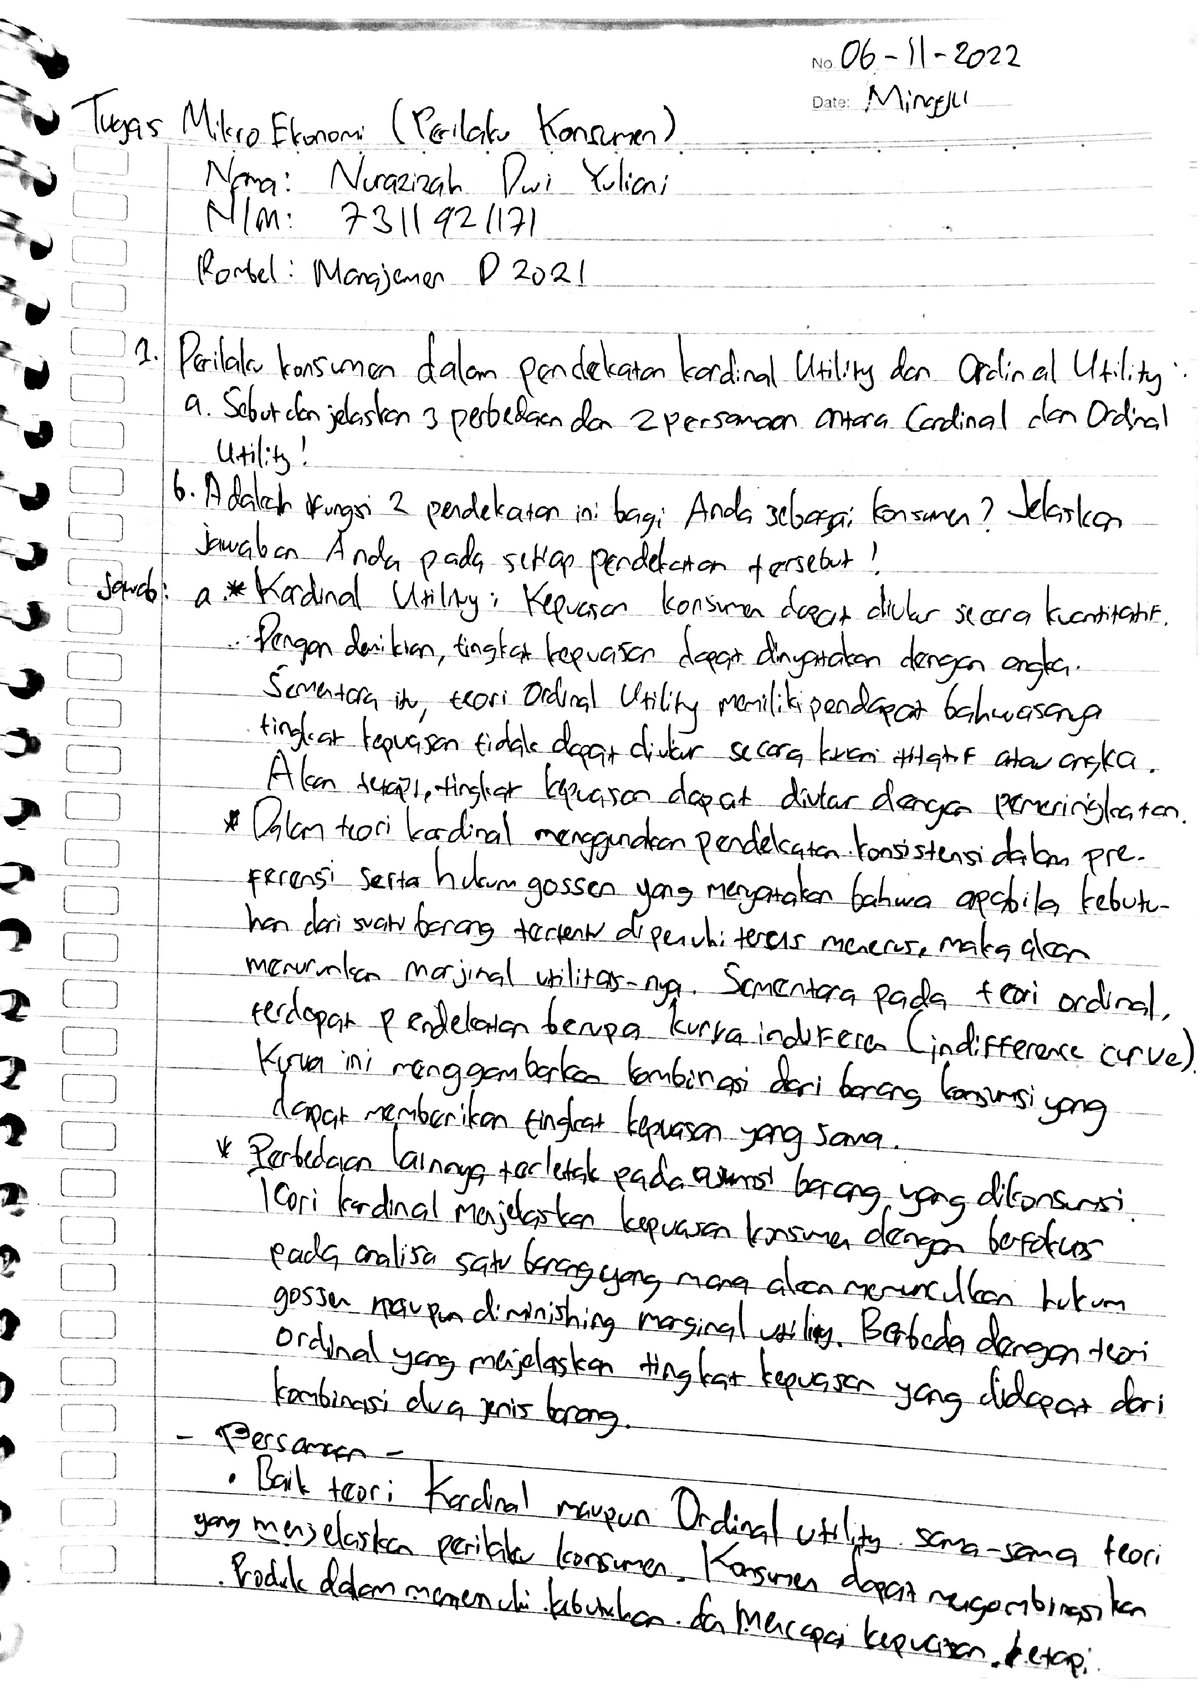 No. 06-11-2022
Date: Minggu
Tugas Mikro Ekonomi (Perilaku Konsumen)
Nama: Nurazizah Dwi Yuliani
NIM: 7311921171
Rombel: Manajemen D 2021
1. Perilaku konsumen dalam pendekatan kardinal Utility dan Ordinal Utility:
a. Sebut dan jelaskan 3 perbedaan dan 2 persamaan antara Cardinal dan Ordinal
Utility!
b. Adakah fungsi 2 pendekatan ini bagi Anda sebagai konsumen? Jelaskan
jawaban Anda pada setiap pendekatan tersebut!
Jawab: a. * Kardinal Utility: Kepuasan konsumen dapat diukur secara kuantitatif.
Dengan demikian, tingkat kepuasan dapat dinyatakan dengan angka.
Sementara itu, teori Ordinal Utility memiliki pendapat bahwasanya
tingkat kepuasan tidak dapat diukur secara kuantitatif atau angka.
Akan tetapi, tingkat kepuasan dapat diukur dengan pemeringkatan.
* Dalam teori kardinal menggunakan pendekatan konsistensi dalam pre-
ferensi serta hukum gossen yang menyatakan bahwa apabila kebutu-
han dari suatu barang tertentu dipenuhi terus menerus, maka akan
menurunkan marjinal utilitas-nya. Sementara pada teori ordinal,
terdapat pendekatan berupa kurva indiferen (indifference curve).
Kurva ini menggambarkan kombinasi dari barang konsumsi yang
dapat memberikan tingkat kepuasan yang sama.
* Perbedaan lainnya terletak pada asumsi barang yang dikonsumsi.
Teori kardinal menjelaskan kepuasan konsumen dengan berfokus
pada analisa satu barang yang mana akan memunculkan hukum
gossen maupun diminishing marginal utility. Berbeda dengan teori
ordinal yang menjelaskan tingkat kepuasan yang didapat dari
kombinasi dua jenis barang.
- Persamaan -
• Baik teori Kardinal maupun Ordinal utility sama-sama teori
yang menjelaskan perilaku konsumen. Konsumen dapat mengombinasikan
Produk dalam memenuhi kebutuhan dan mencapai kepuasan. tetapi